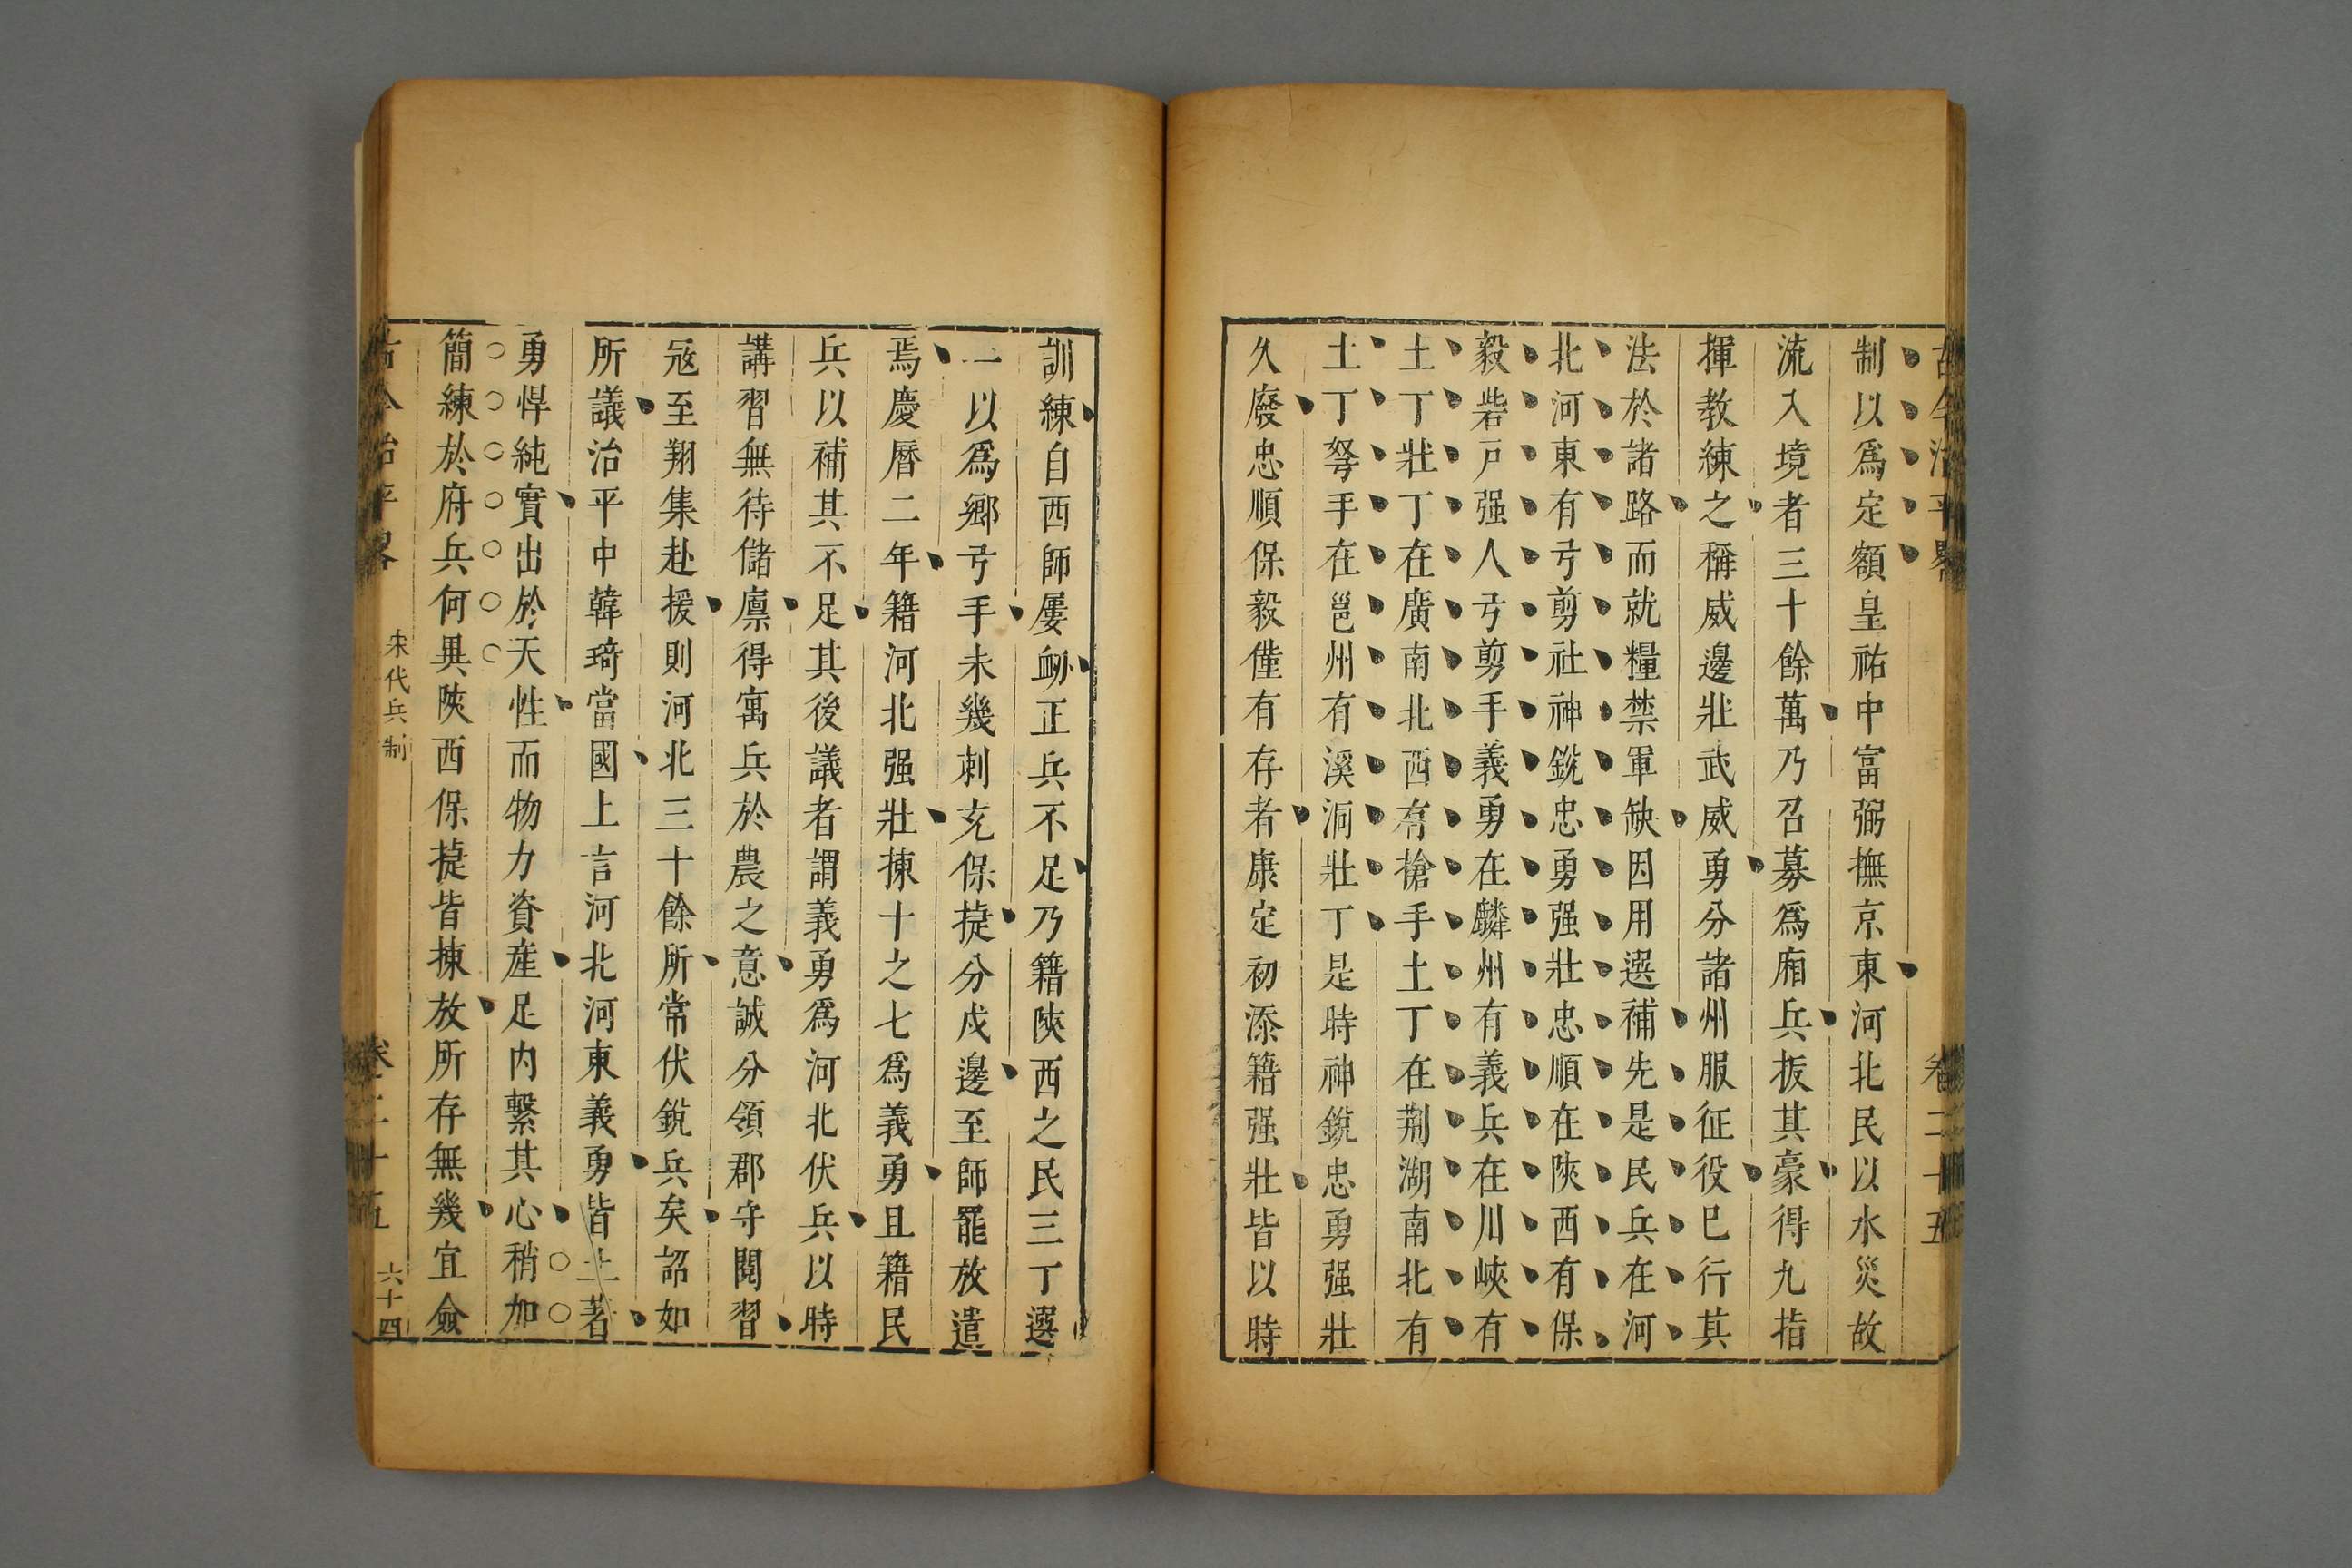 古今治平畧
卷二十五
制以爲定額皇祐中富弼撫京東河北民以水災故
流入境者三十餘萬乃召募爲廂兵㧞其豪得九指
揮教練之稱威邊壯武威勇分諸州服征役巳行其
法於諸路而就糧禁軍缺因用選補先是民兵在河
北河東有弓剪社神銳忠勇强壯忠順在陝西有保
毅砦戸强人弓剪手義勇在麟州有義兵在川峽有
土丁壯丁在廣南北西有槍手土丁在荆湖南北有
土丁弩手在邕州有溪洞壯丁是時神銳忠勇强壯
久廢忠順保毅僅有存者康定初添籍强壯皆以時
訓練自西師屢衂正兵不足乃籍陝西之民三丁選
一以爲鄉弓手未幾刺充保捷分戍邊至師罷放遣
焉慶曆二年籍河北强壯揀十之七爲義勇且籍民
兵以補其不足其後議者謂義勇爲河北伏兵以時
講習無待儲廩得寓兵於農之意誠分領郡守閱習
寇至翔集赴援則河北三十餘所常伏銳兵矣詔如
所議治平中韓琦當國上言河北河東義勇皆土著
勇悍純實出於天性而物力資產足内繫其心稍加
簡練於府兵何異陝西保捷皆揀放所存無幾宜僉
古今治平畧
宋代兵制
卷二十五
六十四